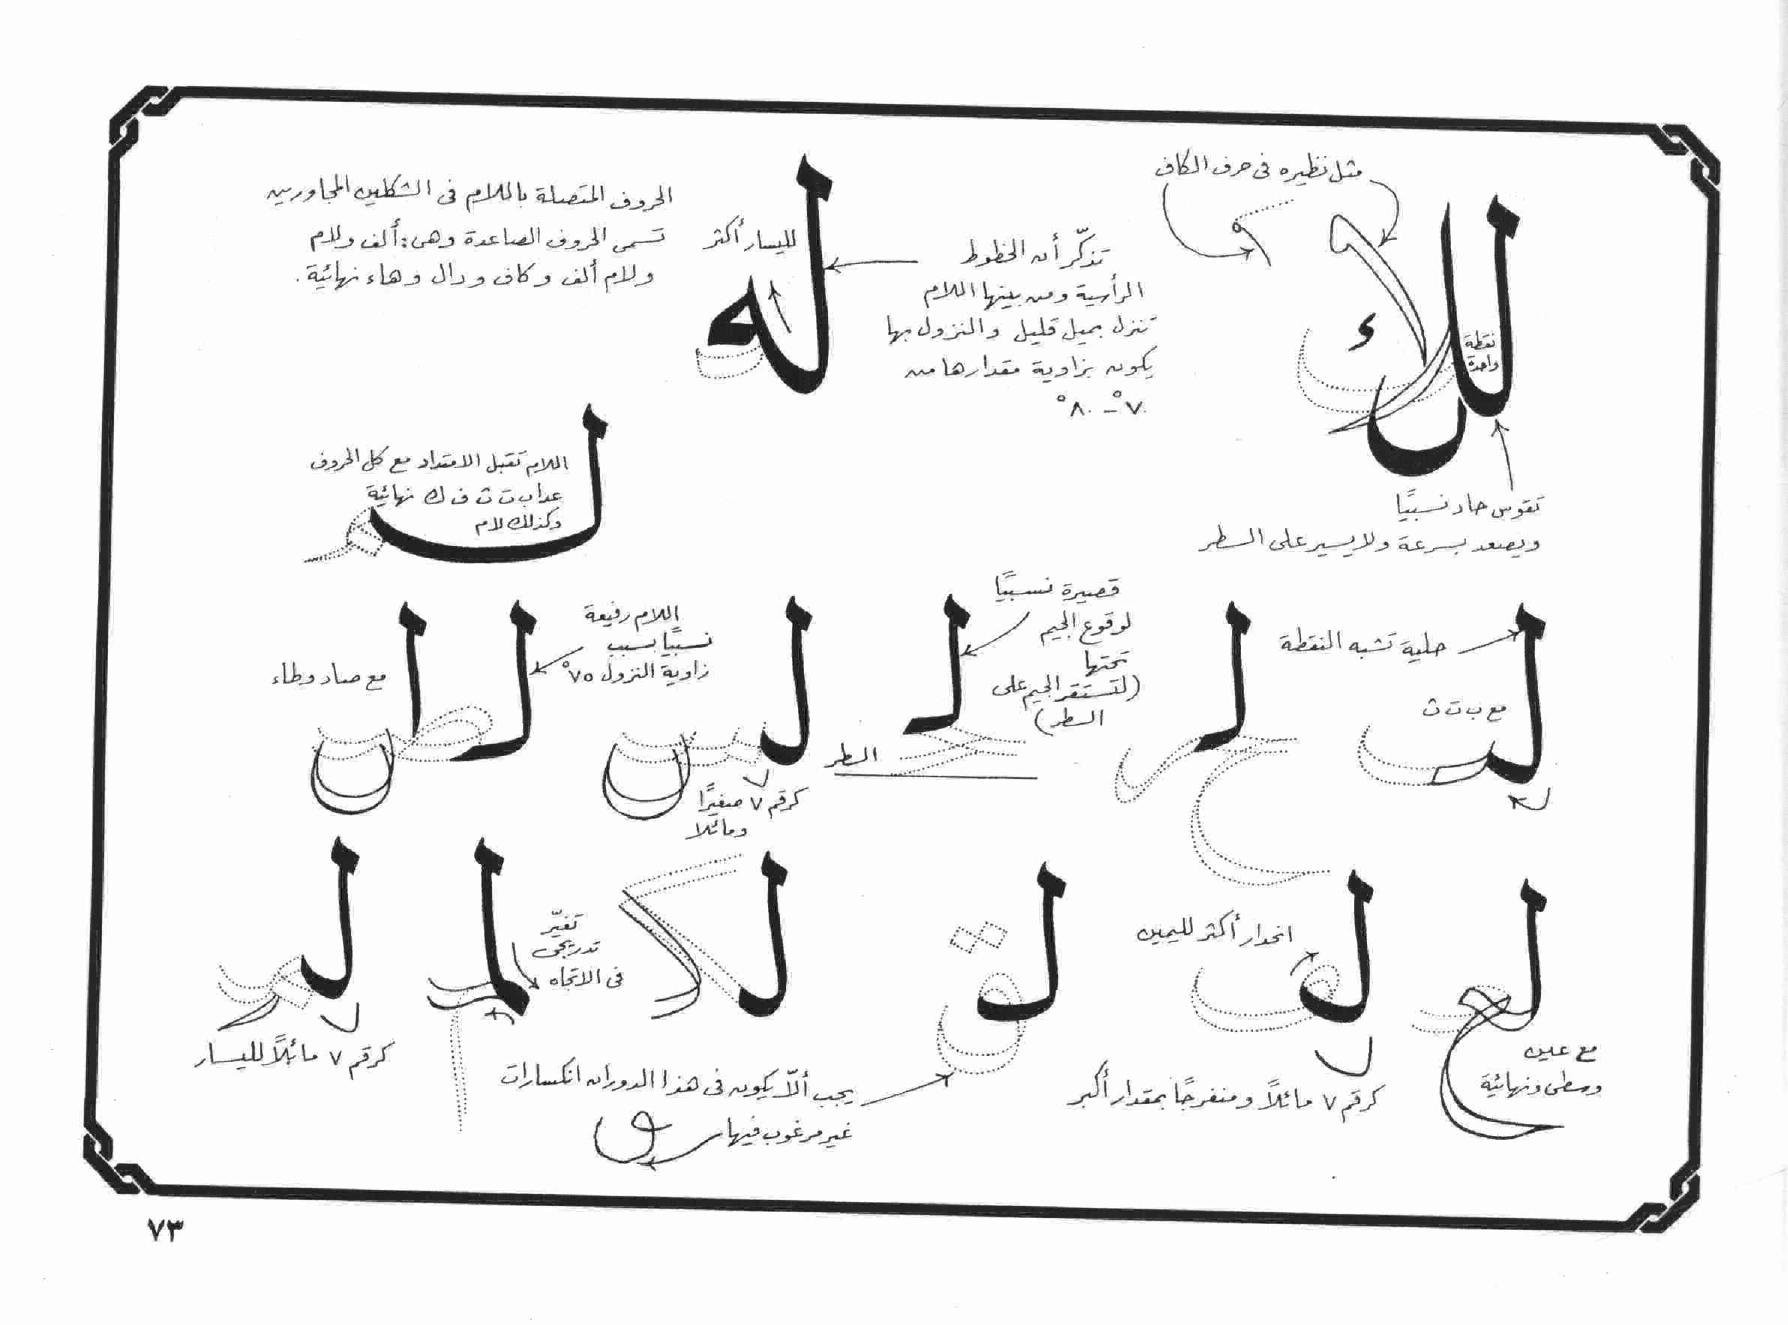 مثل نظيره فى حرف الكاف
للاء
نقطة
واحدة
تقوس حاد نسبيًا
ويصعد بسرعة ولا يسير على السطر
تذكّر أن الخطوط
الرأسية ومن بينها اللام
تنزل بميل قليل والنزول بها
يكون بزاوية مقدارها من
٧٠° – ٨٠°
له
لليسار أكثر
الحروف المتصلة باللام فى الشكلين المجاورين
تسمى الحروف الصاعدة وهى: ألف ولام
ولام ألف وكاف ودال وهاء نهائية.
اللام تقبل الامتداد مع كل الحروف
عدا ب ت ث ف ك نهائية
وكذلك لام
حلية تشبه النقطة
مع ب ت ث
قصيرة نسبيًا
لوقوع الجيم
تحتها
(لتستقر الجيم على
السطر)
السطر
كرقم ٧ صغيرًا
ومائلا
اللام رفيعة
نسبيًا بسبب
زاوية النزول ٧٥°
مع صاد وطاء
مع عين
وسطى ونهائية
انحدار أكثر لليمين
كرقم ٧ مائلاً ومنفرجًا بمقدار أكبر
يجب ألاّ يكون فى هذا الدوران انكسارات
غير مرغوب فيها
تغيّر
تدريجى
فى الاتجاه
كرقم ٧ مائلاً لليسار
٧٣